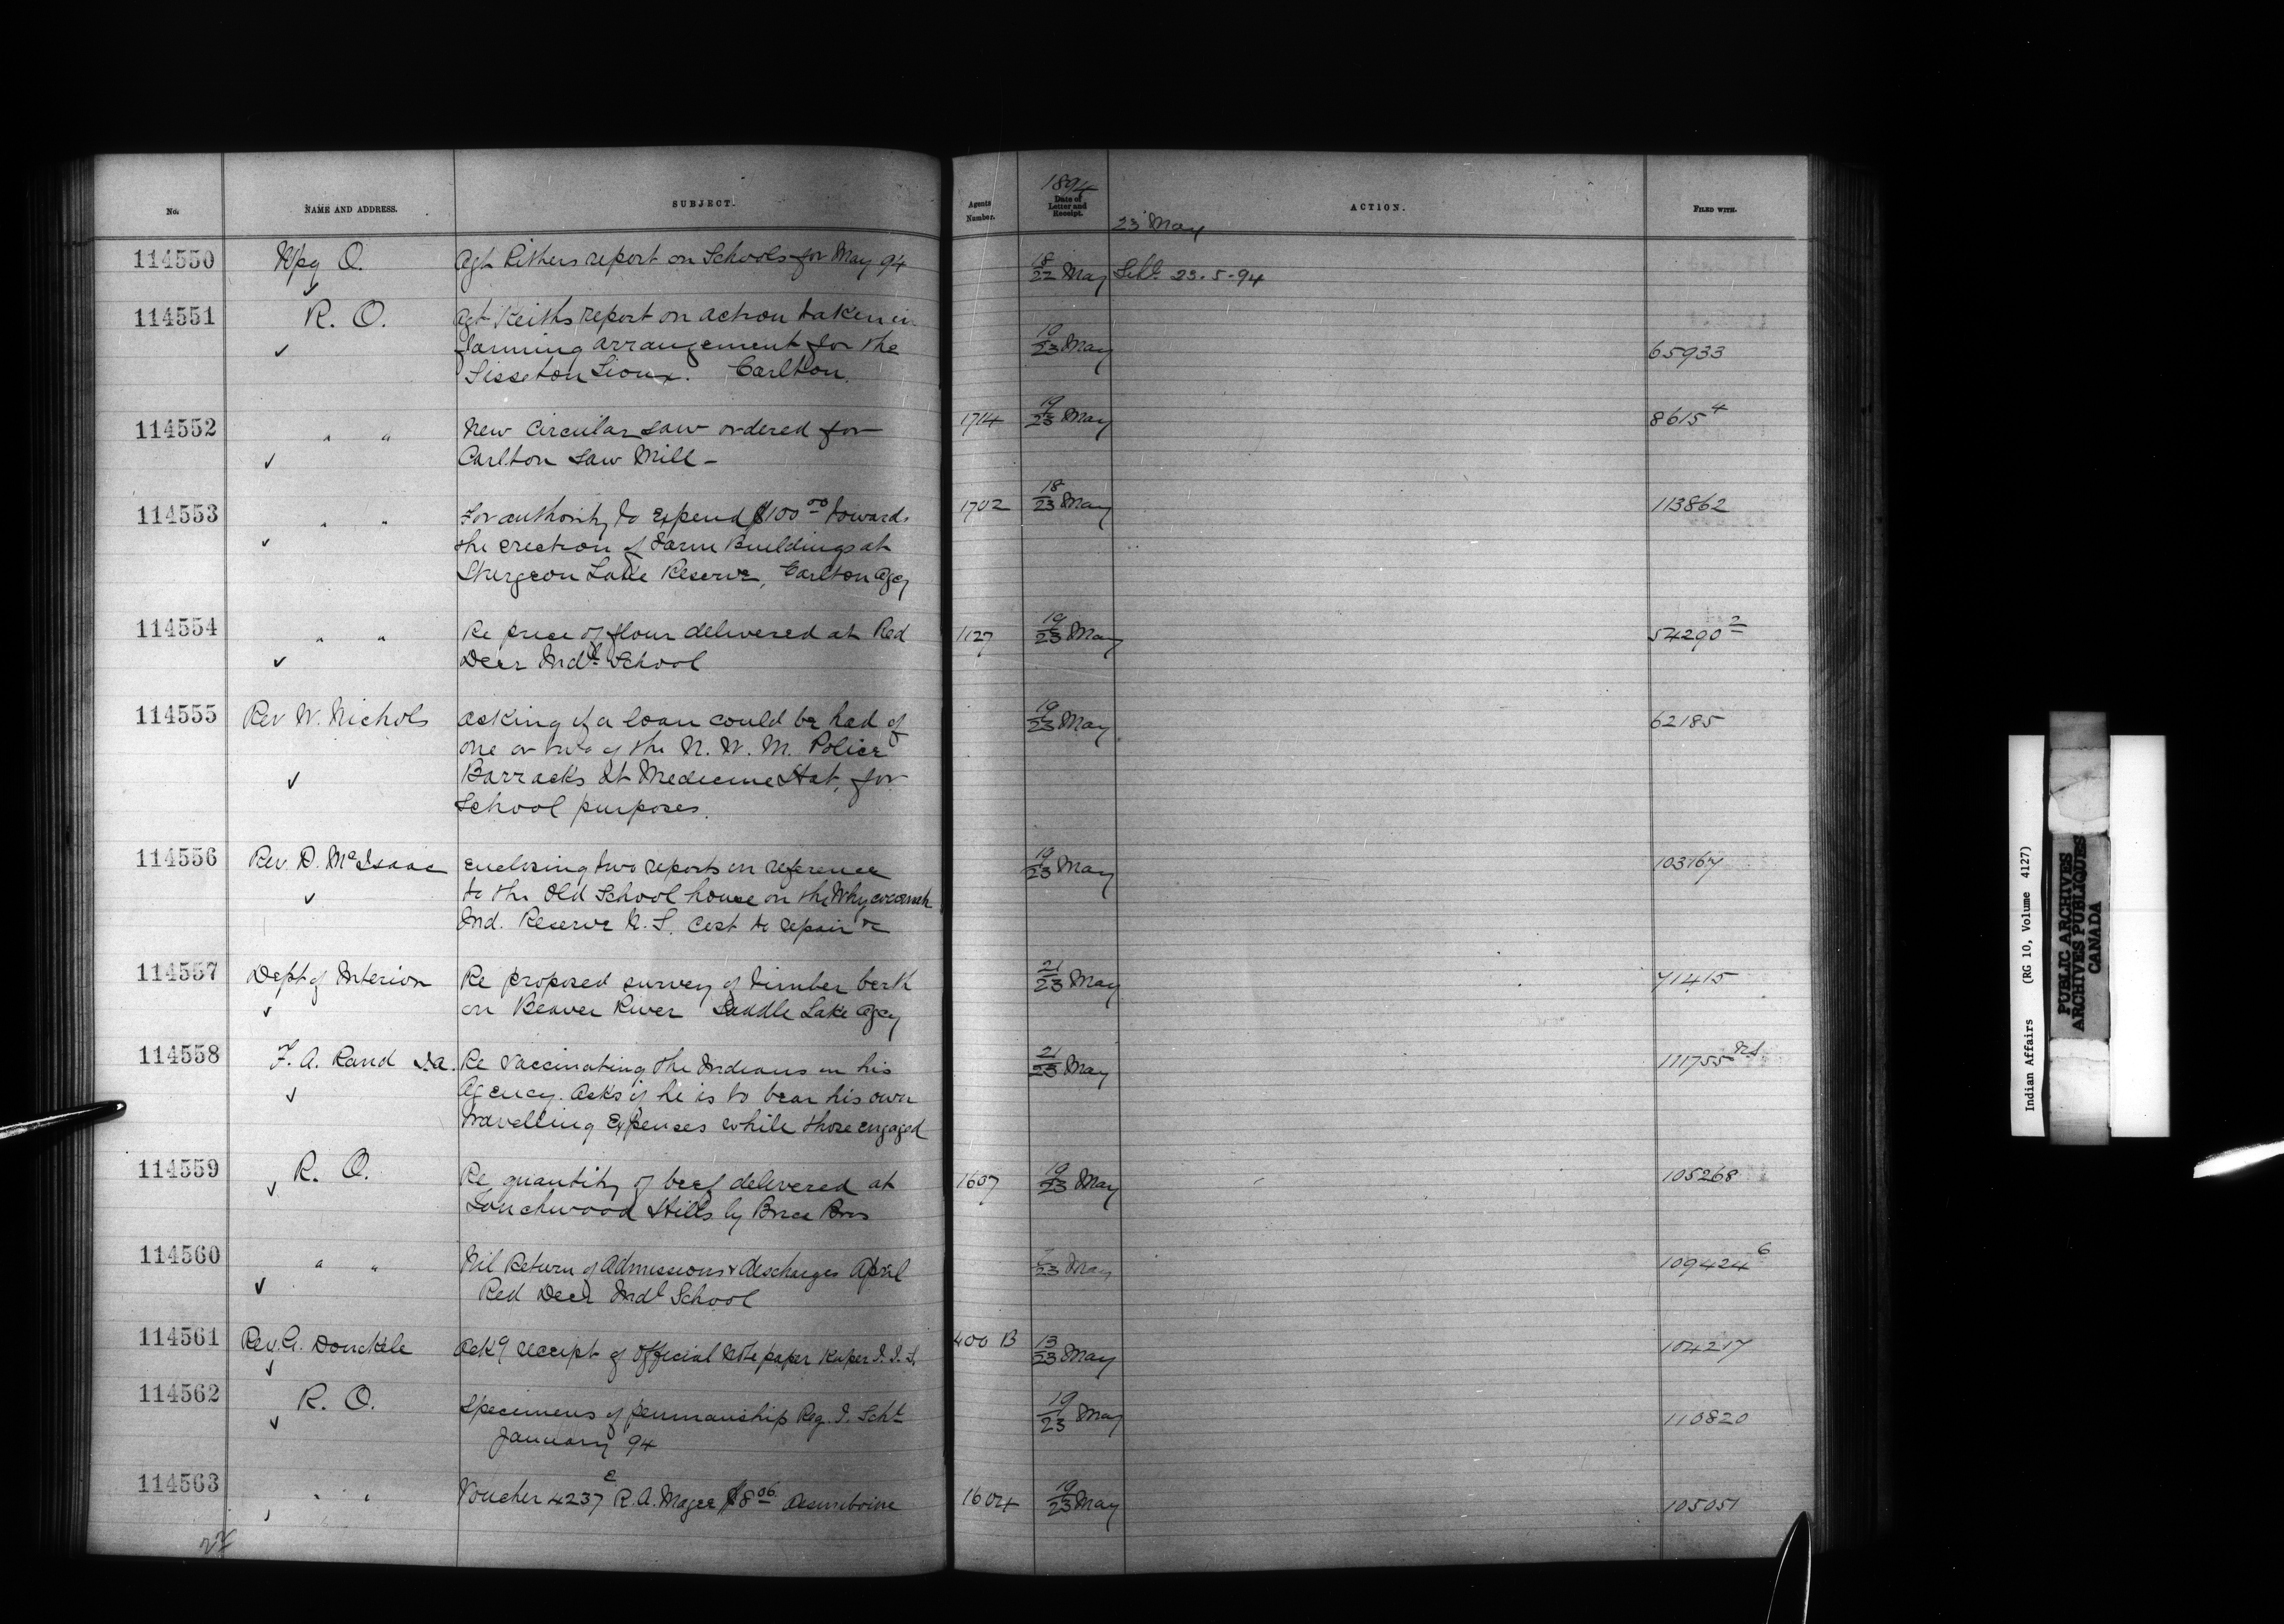 No. NAME AND ADDRESS. SUBJECT. Agents Number. 1894 Date of Letter and Receipt. 23 May ACTION. FILED WITH.
114550 Wpg O. Agt. Pithers report on Schools for May 94 18/22 May Sch. 23.5.94
114551 R. O. Agt Keiths report on action taken in
farming arrangement for the 19/23 May 65933
Sisseton Sioux. Carlton.
114552 " " New Circular saw ordered for 1714 19/23 May 8615 4
Carlton Saw Mill –
114553 " " For authority to expend $100 00 towards 1702 18/23 May 113862
the erection of Farm Buildings at
Sturgeon Lake Reserve, Carlton Agcy
114554 " " Re price of flour delivered at Red 1127 19/23 May 54290 2
Deer Indl School
114555 Rev W. Nichols asking if a loan could be had of 19/23 May 62185
one or two of the N. W. M. Police
Barracks at Medicine Hat, for
School purposes.
114556 Rev. D. McIsaac enclosing two reports in reference 19/23 May 103167
to the Old School house on the Whycocomah
Ind. Reserve N. S. Cost to repair &c
114557 Dept of Interior Re proposed survey of timber berth 21/23 May 71415
on Beaver River Saddle Lake Agcy
114558 F. A. Rand I.A. Re vaccinating the Indians in his 21/23 May 111755 NS
Agency. Asks if he is to bear his own
travelling expenses while those engaged
114559 R. O. Re quantity of beef delivered at 1607 19/23 May 105268
Touchwood Hills by Brice Bros
114560 " " Nil Return of Admissions & discharges April 23 May 109424 6
Red Deer Indl School
114561 Rev. A. Donckele Ackg receipt of Official Note paper Kuper I. I. S. 400 B 13/23 May 104217
114562 R. O. Specimens of penmanship Reg. I. Schl 19/23 May 110820
January 94
114563 " " Voucher 4237 E R. A. Magee $8 06 Assiniboine 1604 19/23 May 105051
Indian Affairs (RG 10, Volume 4127)
PUBLIC ARCHIVES
ARCHIVES PUBLIQUES
CANADA